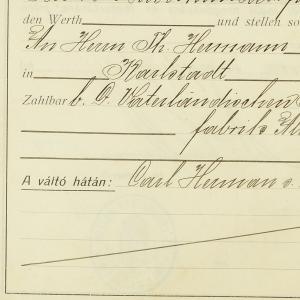 den Werth und stellen so
An Herrn Th. Hermann
in Karlstadt
Zahlbar b. d. Vaterländischen
fabriks
A váltó hátán: Carl Herman